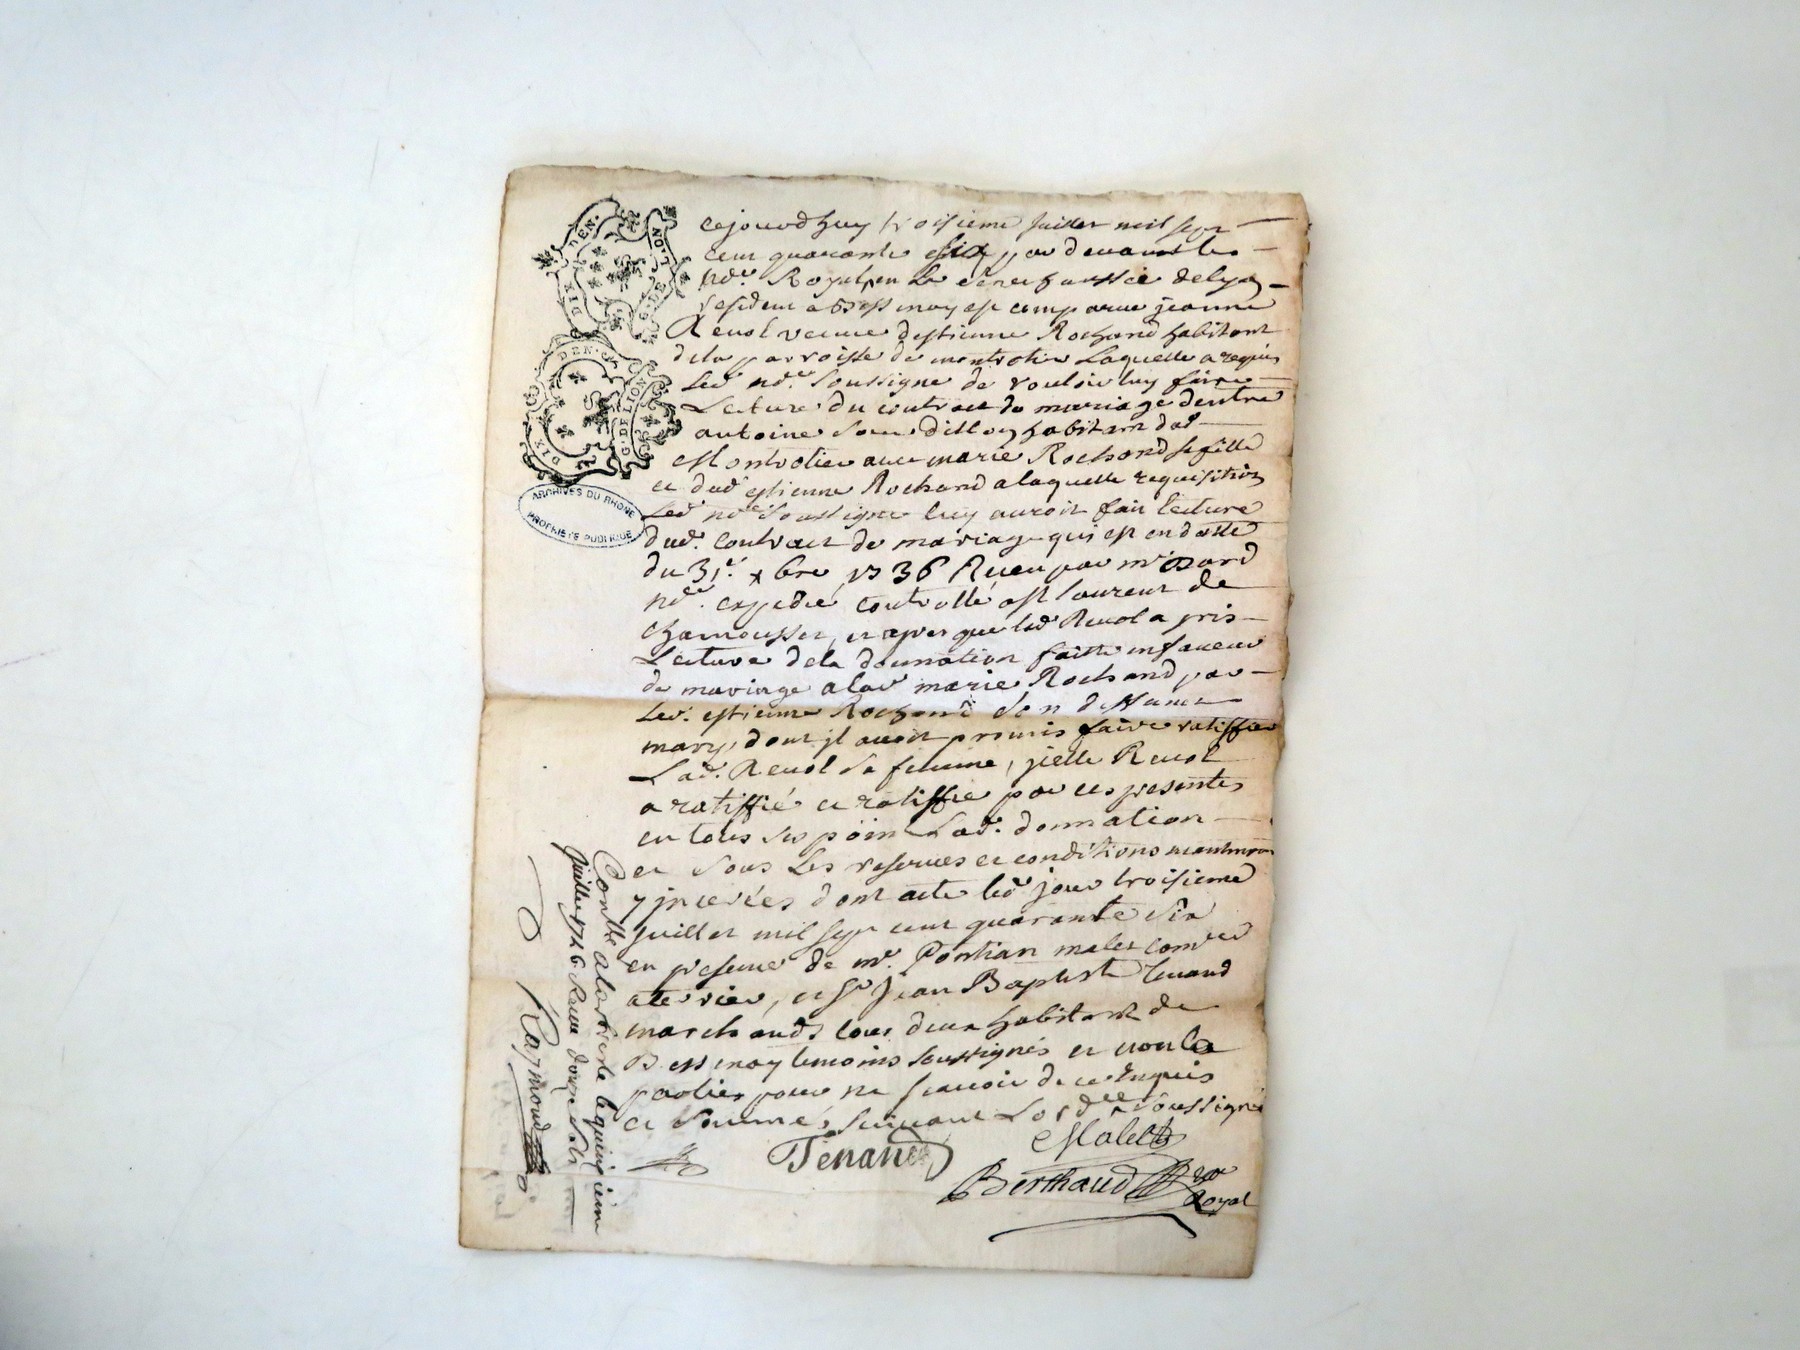 DIX DEN.
G. DE LION
DIX DEN.
G. DE LION
ARCHIVES DU RHONE
PROPRIETE PUBLIQUE
cejourdhuy troisieme juillet mil sept
cent quarante six par devant le
no.re Royal en la senechaussée de lyon
resident a Bessenay est comparue jeanne
Revol veuve destienne Rochand habitant
dela parroisse de montrotier Laquelle a requis
Led no.re soussigne de vouloir luy faire
Lecture du contrat de mariage dentre
antoine habitant dud
Montrotier avec marie Rochand sa fille
et dud estienne Rochand a laquelle requisition
Led no.re soussigne luy auroit fait lecture
dud. contrat de mariage qui est en datte
du 31.e xbre 1736 Receu par mr
no.re expedié controllé a st laurent de
chamousset, et apres que lad Revol a pris
Lecture dela donnation faitte en faveur
de mariage a lad marie Rochand par
Led. estienne Rochand son deffunt
mary, dont jl avoit promis faire ratiffier
Lad. Revol sa femme, jcelle Revol
a ratiffié et ratiffie par ces presentes
en tous ses poin Lad. donnation
et sous Les reserves et conditions
y jncerées dont acte led jour troisieme
juillet mil sept cent quarante six
en presence de mr. Pontian malet
et sr jean Baptiste Tenand
marchands tous deux habitant de
Bessenay temoins soussignés et non la
partie pour ne scavoir de ce enquis
et sommé, suivant Lord.ce soussigné
Malet
Tenand
Berthaud no.re
Royal
Conttle a larbresle le quinzieme
juillet 1746 Receu douze sols
Raymond